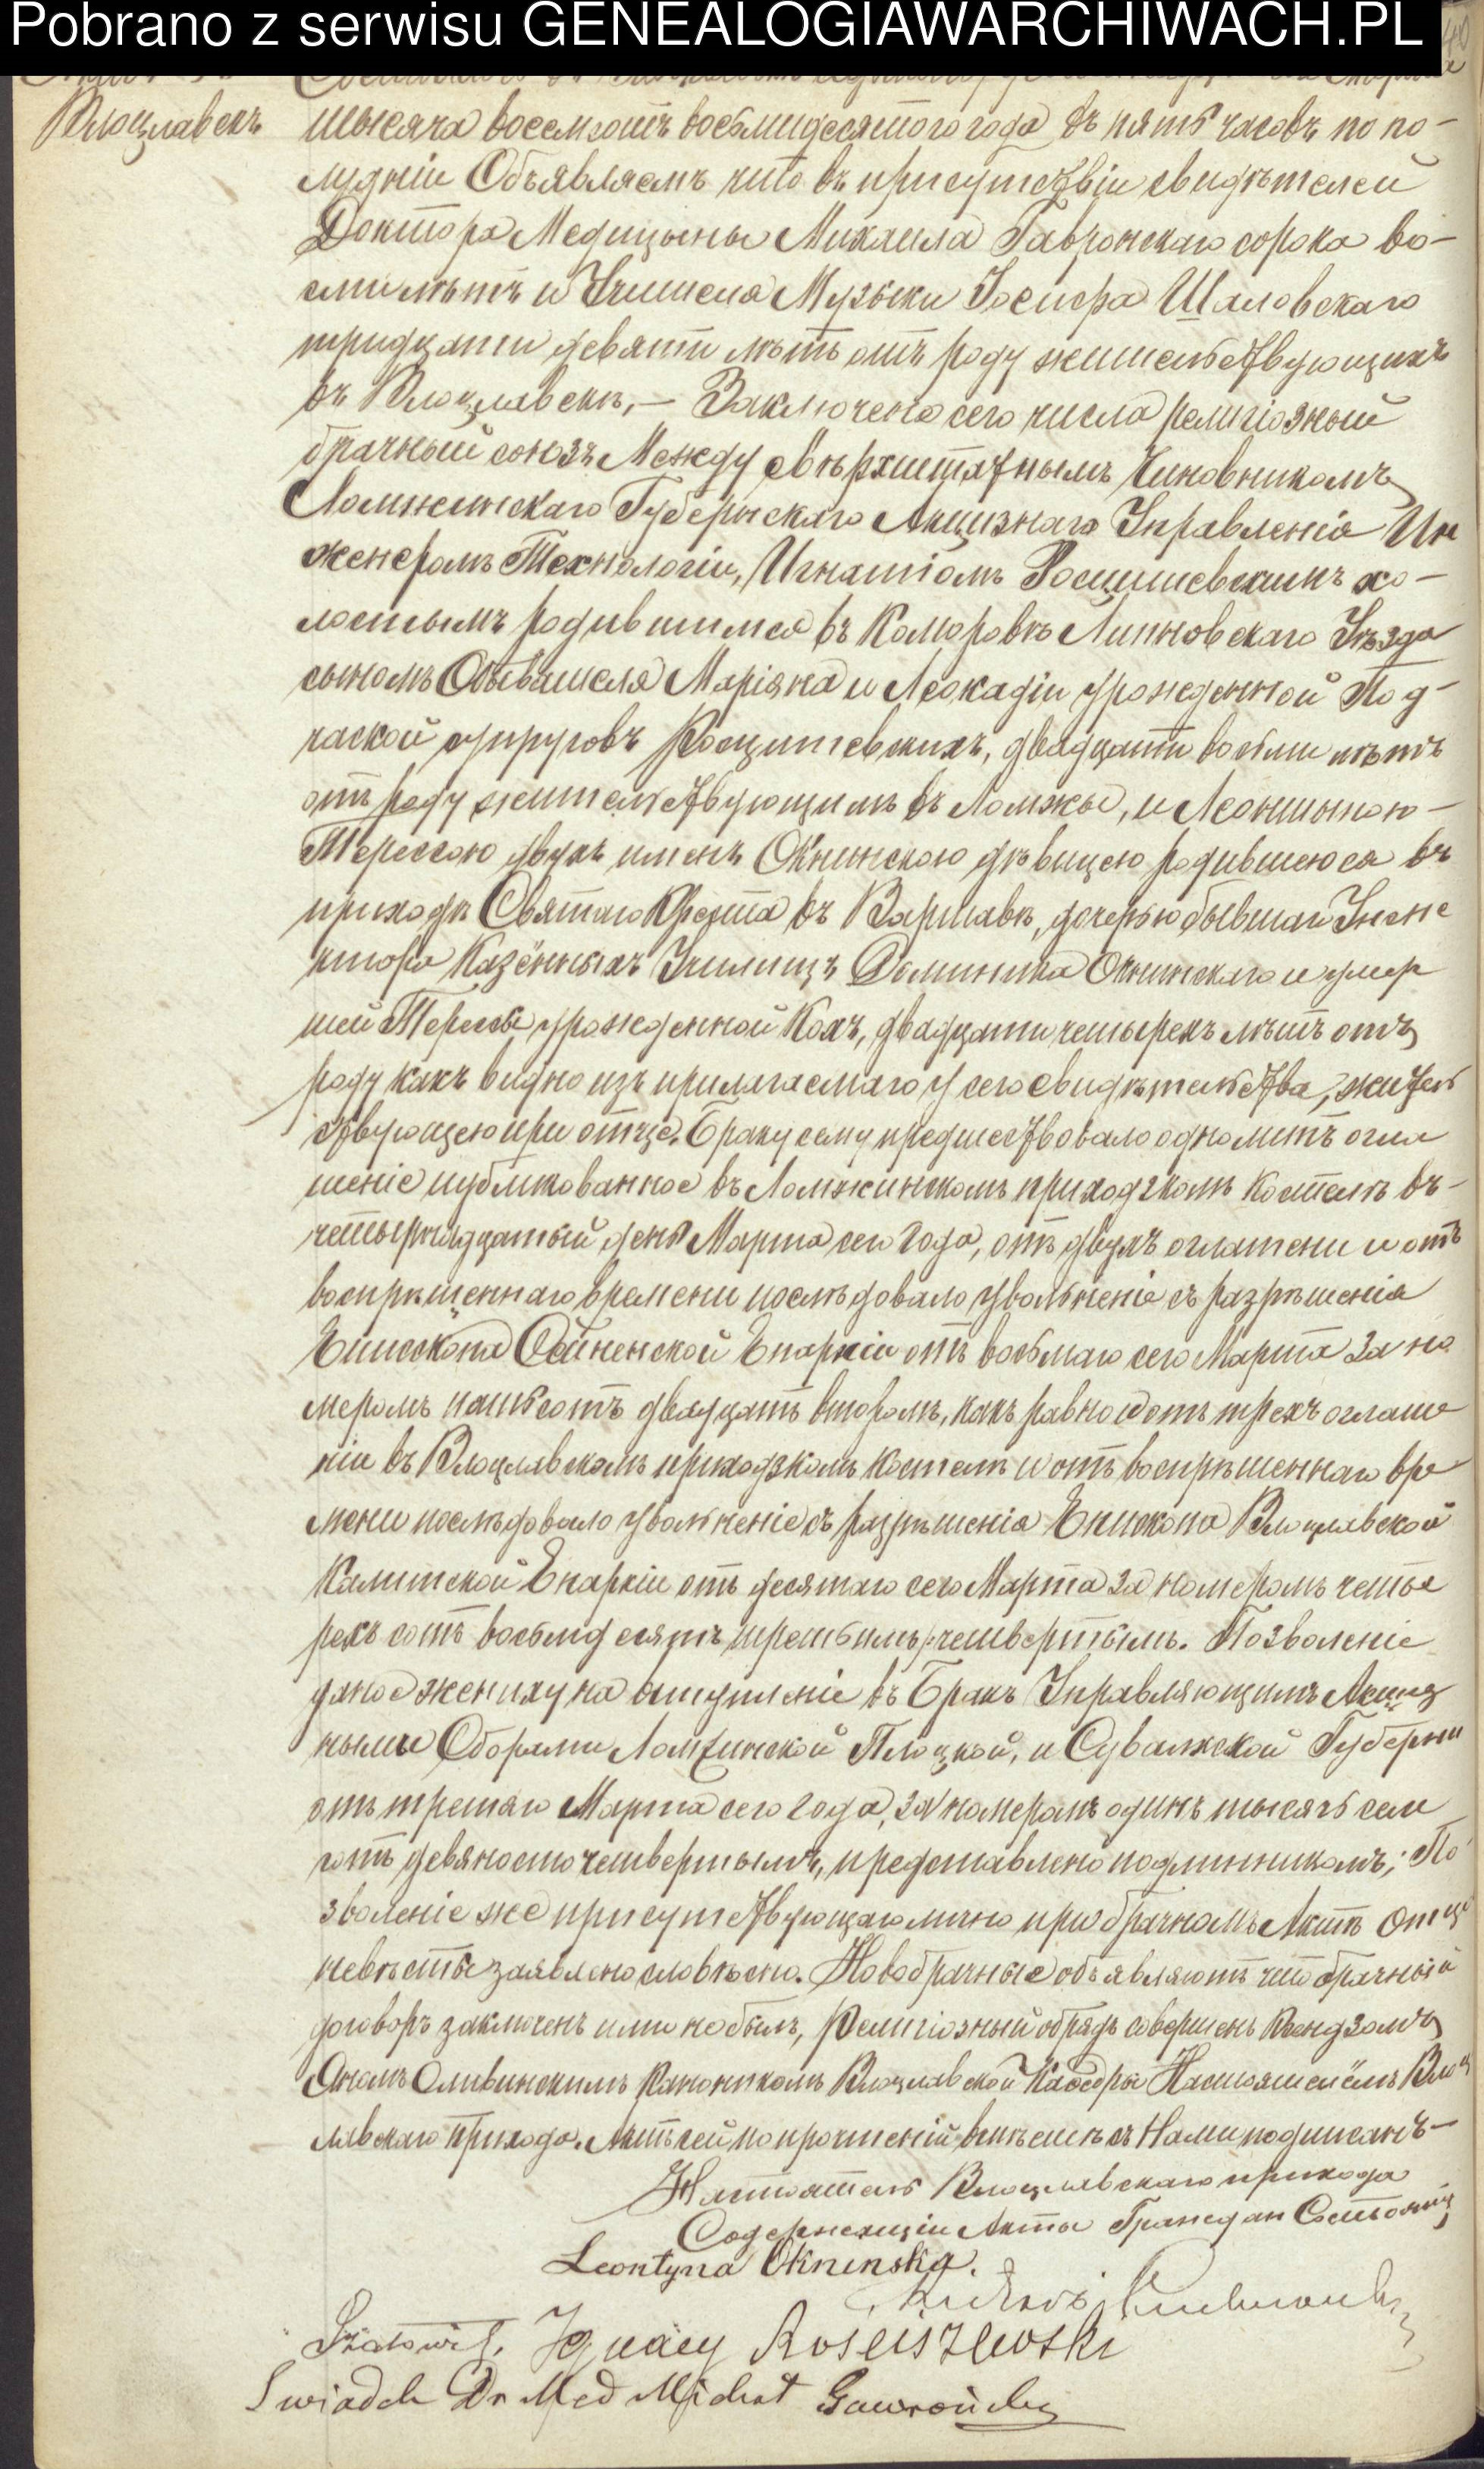 Pobrano z serwisu GENEALOGIAWARCHIWACH.PL
Влоцлавекъ
тысяча восемьсотъ восьмидесятого года въ пять часовъ по по-
лудніи Объявляемъ что въ присутствіи свидѣтелей
Доктора Медицыны Михаила Гавронскаго сорока во-
сми лѣтъ и Учителя Музыки Іосифа Шаловскаго
тридцати девяти лѣтъ отъ роду жительствующихъ
въ Влоцлавекѣ, — Заключено сего числа религіозный
брачный союзъ Между свѣрхштатнымъ Чиновникомъ
Ломжинскаго Губернскаго Акцизнаго Управленія Ин
женеромъ Технологіи, Игнатіомъ Росцишевскимъ хо-
лостымъ родившимся въ Коморовѣ Липновскаго Уѣзда
сыномъ Обывателя Маріяна и Леокадіи урожденной Под-
чаской супруговъ Росцишевскихъ, двадцати восьми лѣтъ
отъ роду жительствующимъ въ Ломжы, и Леонтыною-
Терессою двухъ именъ Окнинскою дѣвицею родившеюся въ
приходѣ Святаго Креста въ Варшавѣ, дочерью бывшаго Инспе
ктора Казённыхъ Училищъ Доминика Окнинскаго и умер
шей Терессы урожденной Кохъ, двадцати четырехъ лѣтъ отъ
роду какъ видно изъ прилагаемаго у сего свидѣтельства, житель
ствующею при отце. Браку сему предшествовало одно лишъ огла
шеніе публикованное въ Ломжинскомъ приходзкомъ Костелѣ въ-
четырнадцатый день Марта сего года, отъ двухъ оглашени и отъ
воспрѣщеннаго времени послѣдовало увольненіе съ разрѣшенія
Епископа Сейненской Епархіи отъ восьмаго сего Марта за но
мером пятьсотъ двадцать вторымъ, какъ равно и отъ трехъ оглаше
ніи въ Влоцлавскомъ приходзкомъ Костелѣ и отъ воспрѣщеннаго вре
мени послѣдовало увольненіе съ разрѣшенія Епископа Влоцлавской
Калишской Епархіи отъ десятаго сего Марта за номеромъ четы
рехъ сотъ восьмдесятъ третьимъ/четвертымъ. Позволеніе
даное жениху на вступленіе въ Бракъ Управляющимъ Акциз
ными Сборами Ломжинской Плоцкой, и Сувалкской Губерни
отъ третяго Марта сего года, за номеромъ одинъ тысячъ семь
сотъ девяносто четвертымъ, представлено подлинникомъ; По
зволеніе же присутствующаго лично при брачномъ Актѣ Отца
невѣсты заявлено словѣсно. Новобрачные объявляютъ что брачный
договоръ заключенъ ими не былъ, Религіозный обрядъ совершенъ Ксендзомъ
Яномъ Оливинскимъ Каноникомъ Влоцлавской Каѳедры Настоятелемъ Влоц
лавскаго прихода. Актъ сей по прочтеній вмѣстѣ съ Нами подписанъ-
Настоятель Влоцлавскаго прихода
Содержающіи Акты Граждан Состояній
Leontyna Okninska.
Szałowski. Ignacy Rosciszewski
Swiadek Dr Med Michał Gawroński